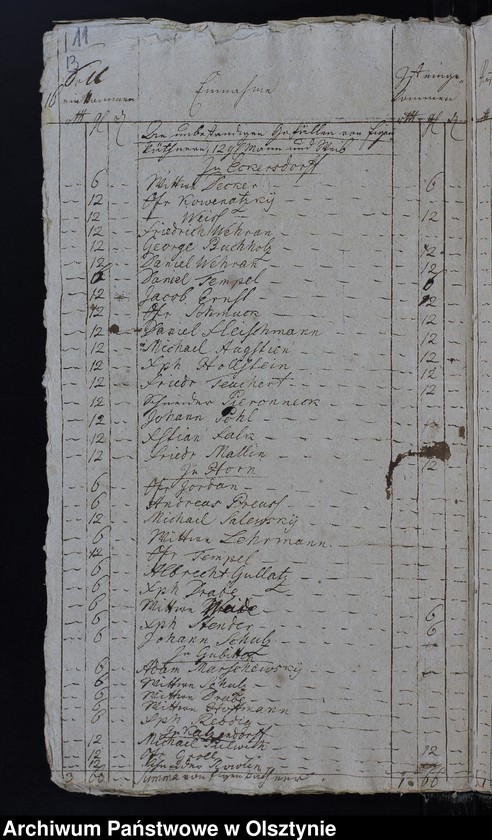 11
13
Soll
einkommen
rtl gl d
Einnahme
Ist einge-
kommen
rtl gl d
Die unbeständigen Gefällen von Eigen
Käthnern, 12 gl Mann und Weib
In Eckersdorff
6 Wittwe Decker 6
12 Chr Koweratzky
12 Weiss 12
12 Friedrich Wehran
12 George Buchholz 12
12 Daniel Wehran 12
6 Daniel Tempel 6
12 Jacob Ernst 12
12 Chr Schmuck 12
12 Daniel Fleischmann 12
12 Michael Augstien 12
12 Xph Hollstein 12
12 Friedr Teuchert 12
12 Schneider Pieronneck
12 Johann Pohl
12 Xstian Falk
12 Friedr Mallin 12
In Horn
6 Chr Jordan
6 Andreas Preuss
12 Michael Salewsky
6 Wittwe Lehrmann
12 Chr Tempel
6 Albrecht Gullatz
6 Xph Grabe
6 Wittwe Weide 6
6 Xph Stender 6
6 Johann Schulz
In Gubitten
6 Adam Marschewsky
6 Wittwe Schulz
6 Wittwe
6 Wittwe Hoffmann
6 Xph Reddig
In Katzendorff
12 Michael 12
12
12 Schneider
3 60 Summa von Eigenkäthner 1 66
Archiwum Państwowe w Olsztynie